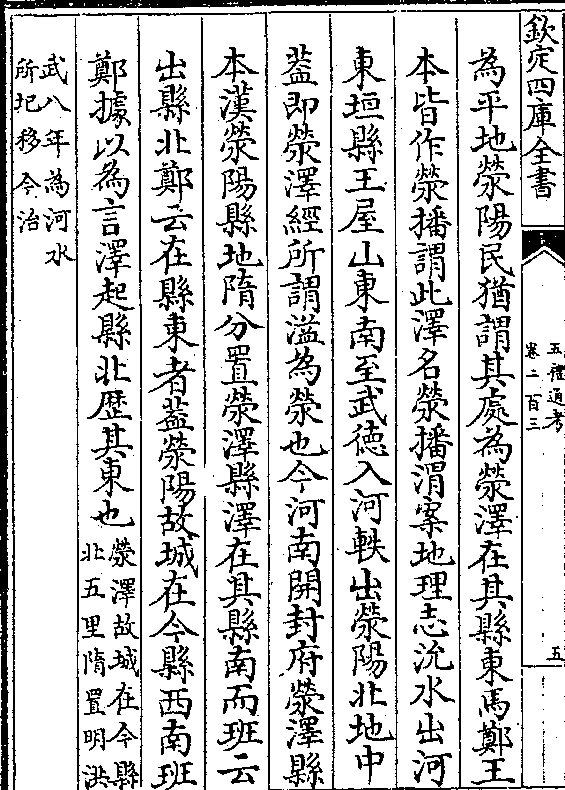 欽定四庫全書
五禮通考
卷二百三
五
為平地滎陽民猶謂其處為滎澤在其縣東馬鄭王
本皆作滎播謂此澤名滎播渭案地理志沇水出河
東垣縣王屋山東南至武德入河軼出滎陽北地中
葢即滎澤經所謂溢為滎也今河南開封府滎澤縣
本漢滎陽縣地隋分置滎澤縣澤在其縣南而班云
出縣北鄭云在縣東者葢滎陽故城在今縣西南班
鄭據以為言澤起縣北歴其東也
滎澤故城在今縣
北五里隋置明洪
武八年為河水
所圯移今治